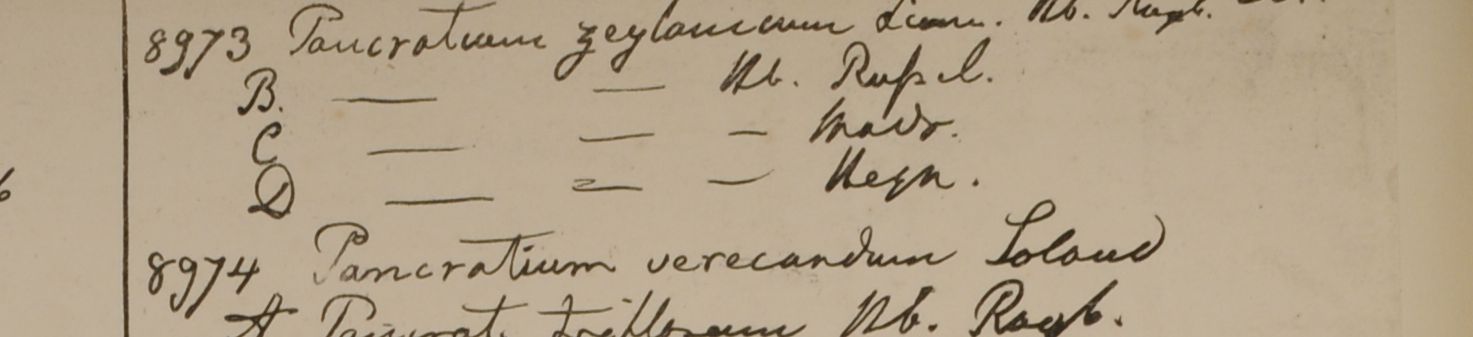 8973 Pancratium zeylanicum Linn. Hb. Roxb.
B. — — Hb. Rußel.
C — — — Madr.
D — = — Heyn.
8974 Pancratium verecundum Soland
A Pancrat. triflorum Hb. Roxb.